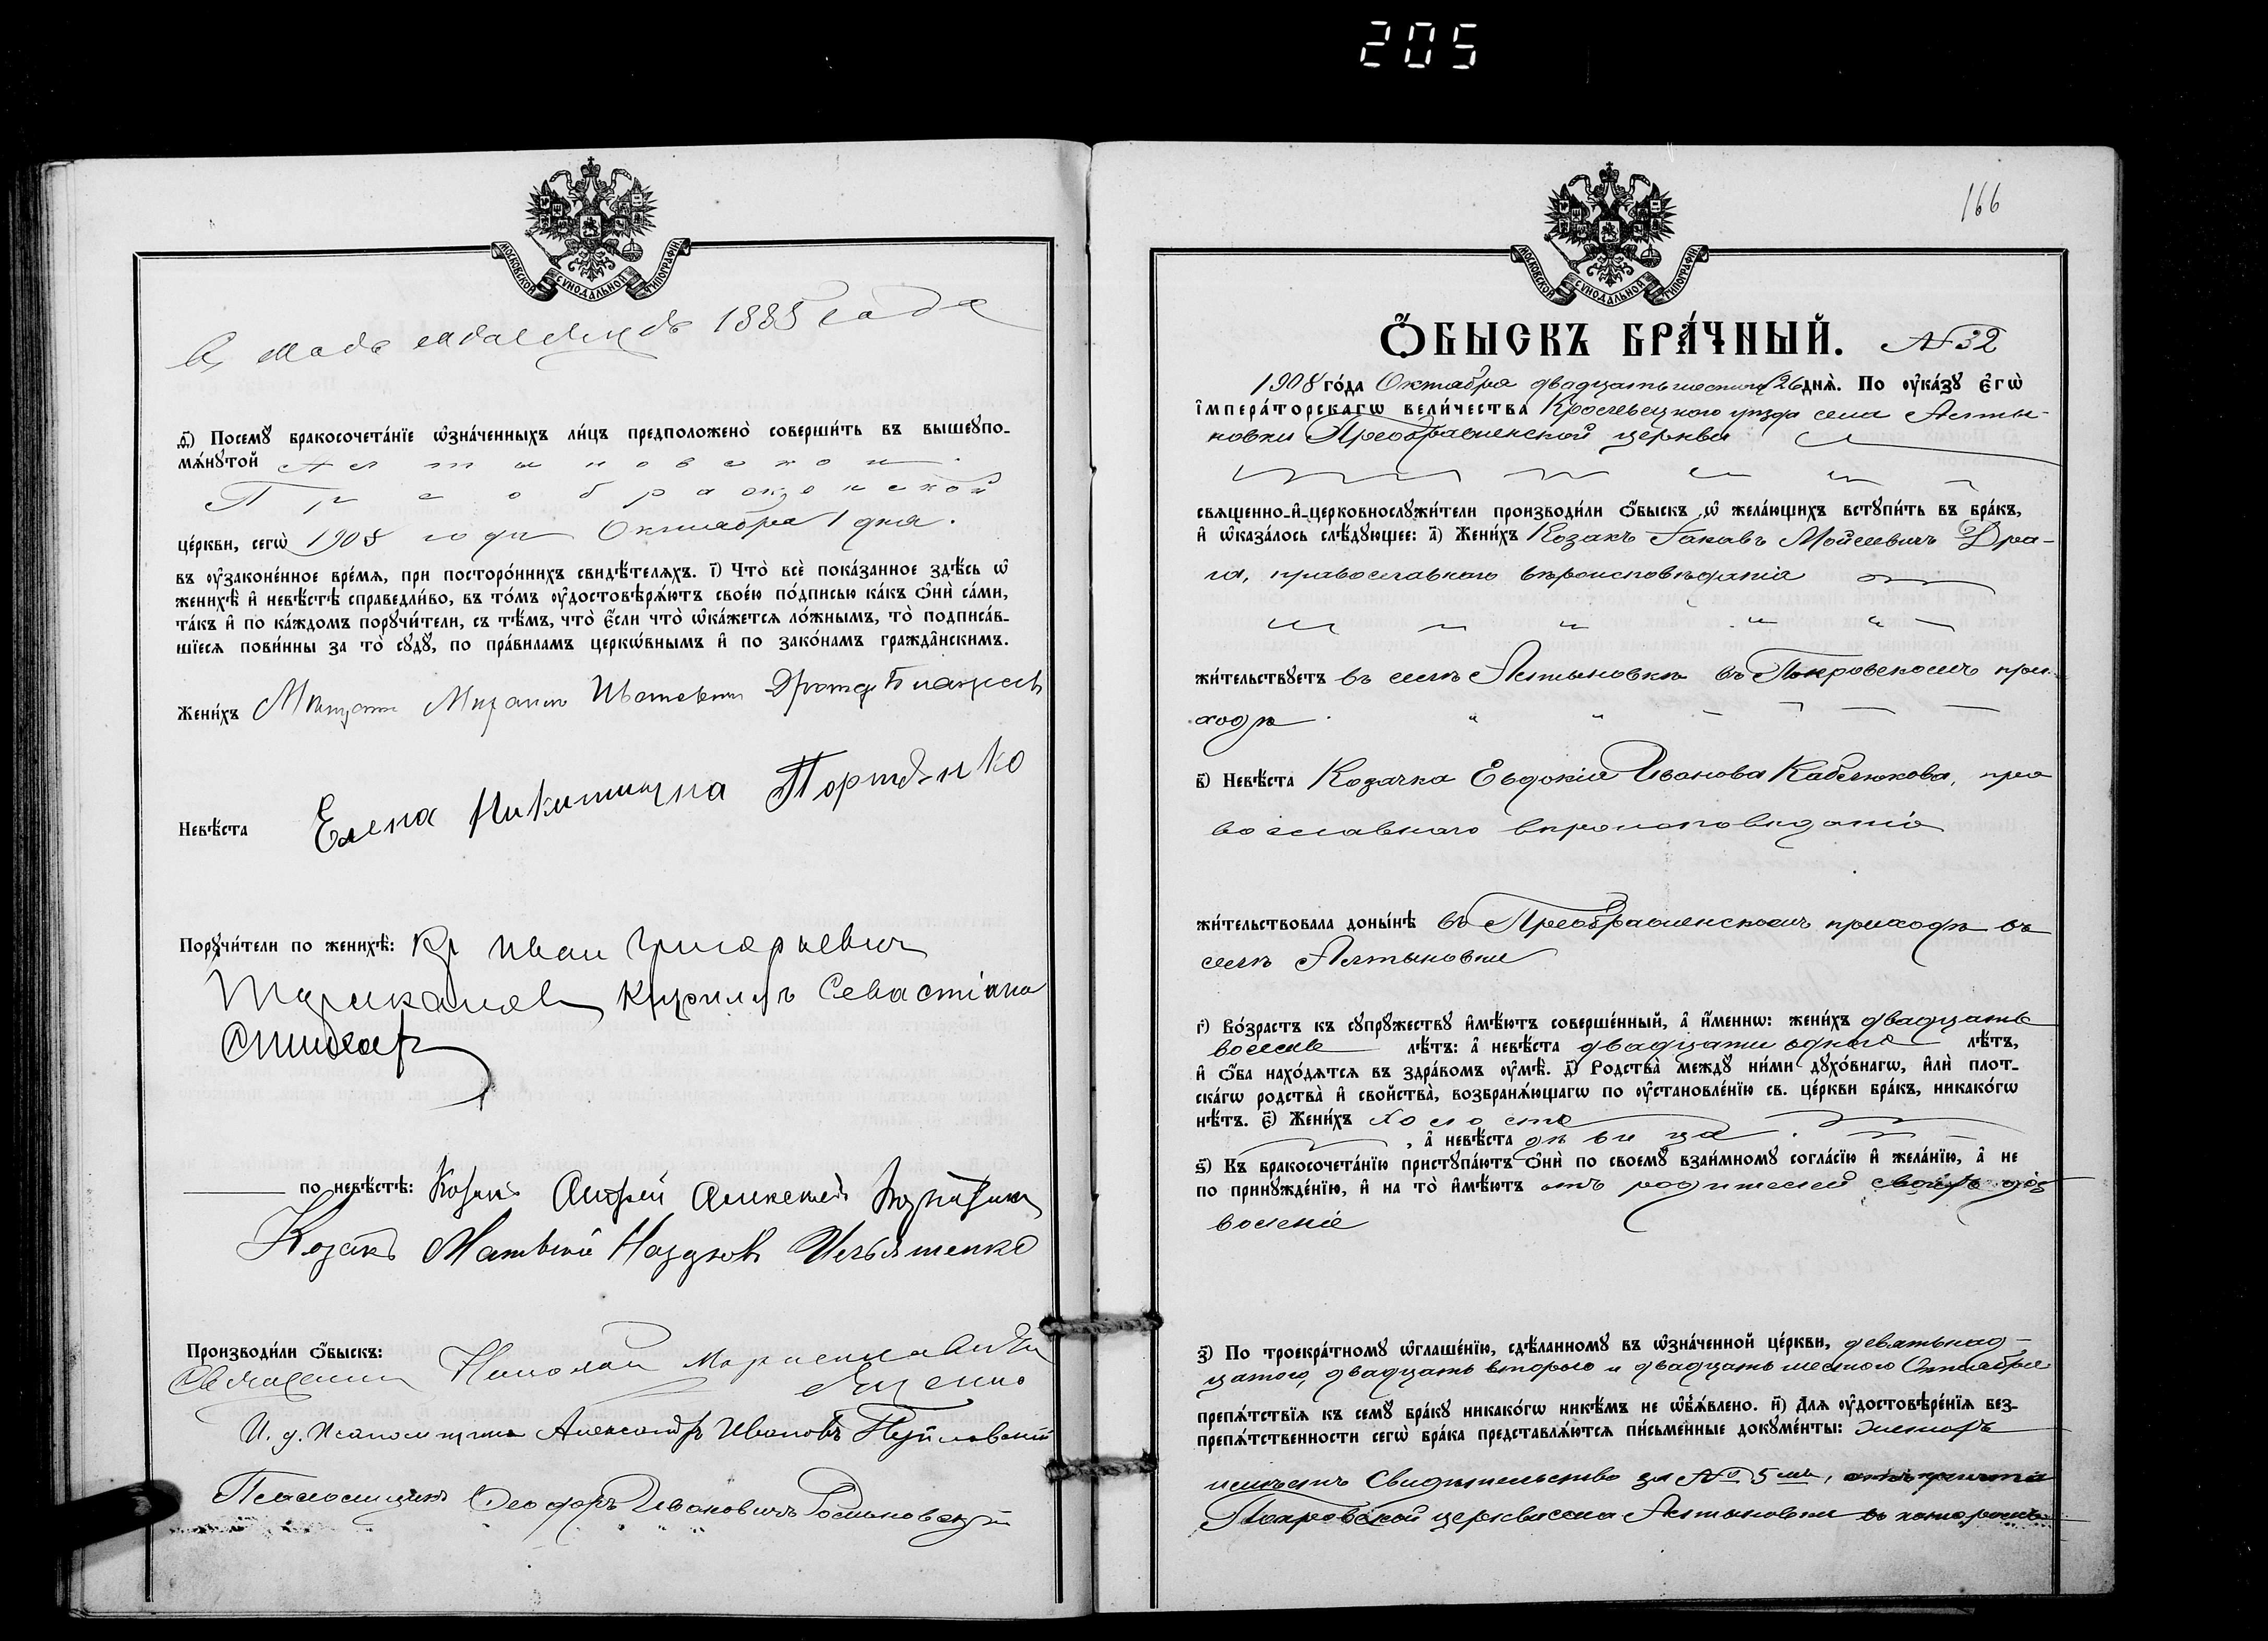 205
МОСКОВСКОЙ СѴНОДАЛЬНОЙ ТИПОГРАФІИ
1885 года
д҃і) Посемꙋ̀ бракосочета́нїе ѡ҆зна́ченныхъ ли́цъ предположено̀ соверши́ть въ вышеꙋпо-
мѧ́нꙋтой Алтыновской
Преображенской
це́ркви, сегѡ̀ 1908 года Октября 1 дня.
въ ᲂу҆зако́ненное вре́мѧ, при посторо́ннихъ свидѣ́телѧхъ. і҃) Что̀ всѐ пока́занное здѣ́сь ѡ҆
женихѣ̀ и҆ невѣ́стѣ справедли́во, въ то́мъ ᲂу҆достовѣрѧ́ютъ свое́ю по́дписью ка́къ ѻ҆нѝ са́ми,
та́къ и҆ по ка́ждомъ порꙋчи́тели, съ тѣ́мъ, что̀ є҆́сли что̀ ѡ҆ка́жетсѧ ло́жнымъ, то̀ подписа́в-
шїесѧ пови́нны за то̀ сꙋдꙋ̀, по пра́виламъ церкѡ́внымъ и҆ по зако́намъ гражда̑нскимъ.
Жени́хъ
Невѣ́ста Елена Никитична
Порꙋчи́тели по женихѣ̀: Кр Иван Григорьевич
Кирилъ Севастіана
по невѣ́стѣ: Козакъ Андрей Алексеевъ
Козакъ Матвый Ильяшенко
Производи́ли ѻ҆́быскъ:
Священник Николай
Яценко
И. д. псаломщика Александръ Ивановъ
Псаломщикъ Феодоръ Ивановичъ
166
МОСКОВСКОЙ СѴНОДАЛЬНОЙ ТИПОГРАФІИ
Ѻ҆́БЫСКЪ БРА́ЧНЫЙ. № 32
1908 го́да Октября двадцать шестого 26 днѧ̀. По ᲂу҆ка́зꙋ є҆гѡ̀
і҆мпера́торскагѡ вели́чества Кролевецкаго уѣзда села Алты-
новки Преображенской церкви
свѧще́нно-и҆-церковнослꙋжи́тели производи́ли ѻ҆́быскъ ѡ҆ жела́ющихъ встꙋпи́ть въ бра́къ,
и҆ ѡ҆каза́лось слѣ́дꙋющее: а҃) Жени́хъ Козакъ Іаковъ Мойсеевичъ Дра-
га, православнаго вѣроисповѣданія
жи́тельствꙋетъ въ селѣ Алтыновкѣ въ Покровскомъ при-
ходѣ
в҃) Невѣ́ста Козачка Евдокія Иванова Кабелюкова, пра
вославнаго вѣроисповѣданія
жи́тельствовала доны́нѣ въ Преображенскомъ приходѣ въ
селѣ Алтыновки
г҃) Во́зрастъ къ сꙋпрꙋ́жествꙋ и҆мѣ́ютъ соверше́нный, а҆ и҆́меннѡ: жени́хъ двадцать
восемь лѣ́тъ: а҆ невѣ́ста двадцати одного лѣ́тъ,
и҆ ѻ҆́ба нахо́дѧтсѧ въ здра́вомъ ᲂу҆мѣ̀. д҃) Родства̀ междꙋ̀ ни́ми дꙋхо́внагѡ, и҆лѝ плот-
ска́гѡ родства̀ и҆ сво́йства̀, возбранѧ́ющагѡ по ᲂу҆становле́нїю св. це́ркви бра́къ, никако́гѡ
нѣ́тъ. є҃) Жени́хъ холостъ
, а҆ невѣ́ста дѣвица.
ѕ҃) Къ бракосочета́нїю пристꙋпа́ютъ ѻ҆нѝ по своемꙋ̀ взаи́мномꙋ согла́сїю и҆ жела́нїю, а҆ не
по принꙋжде́нїю, и҆ на то̀ и҆мѣ́ютъ отъ родителей своихъ доз
воленіе
з҃) По троекра́тномꙋ ѡ҆глаше́нїю, сдѣ́ланномꙋ въ ѡ҆зна́ченной це́ркви, девятьнад-
цатого, двадцать второго и двадцать шестого Октября
препѧ́тствїѧ къ семꙋ̀ бра́кꙋ никако́гѡ никѣ́мъ не ѡ҆б̾ѧ́влено. и҃) Длѧ ᲂу҆достовѣре́нїѧ без-
препѧ́тственности сегѡ̀ бра́ка представлѧ́ютсѧ пи́сьменные докꙋме́нты:
Свидѣтельство за № 5мъ, отъ причта
Покровской церкви села Алтыновки въ которомъ